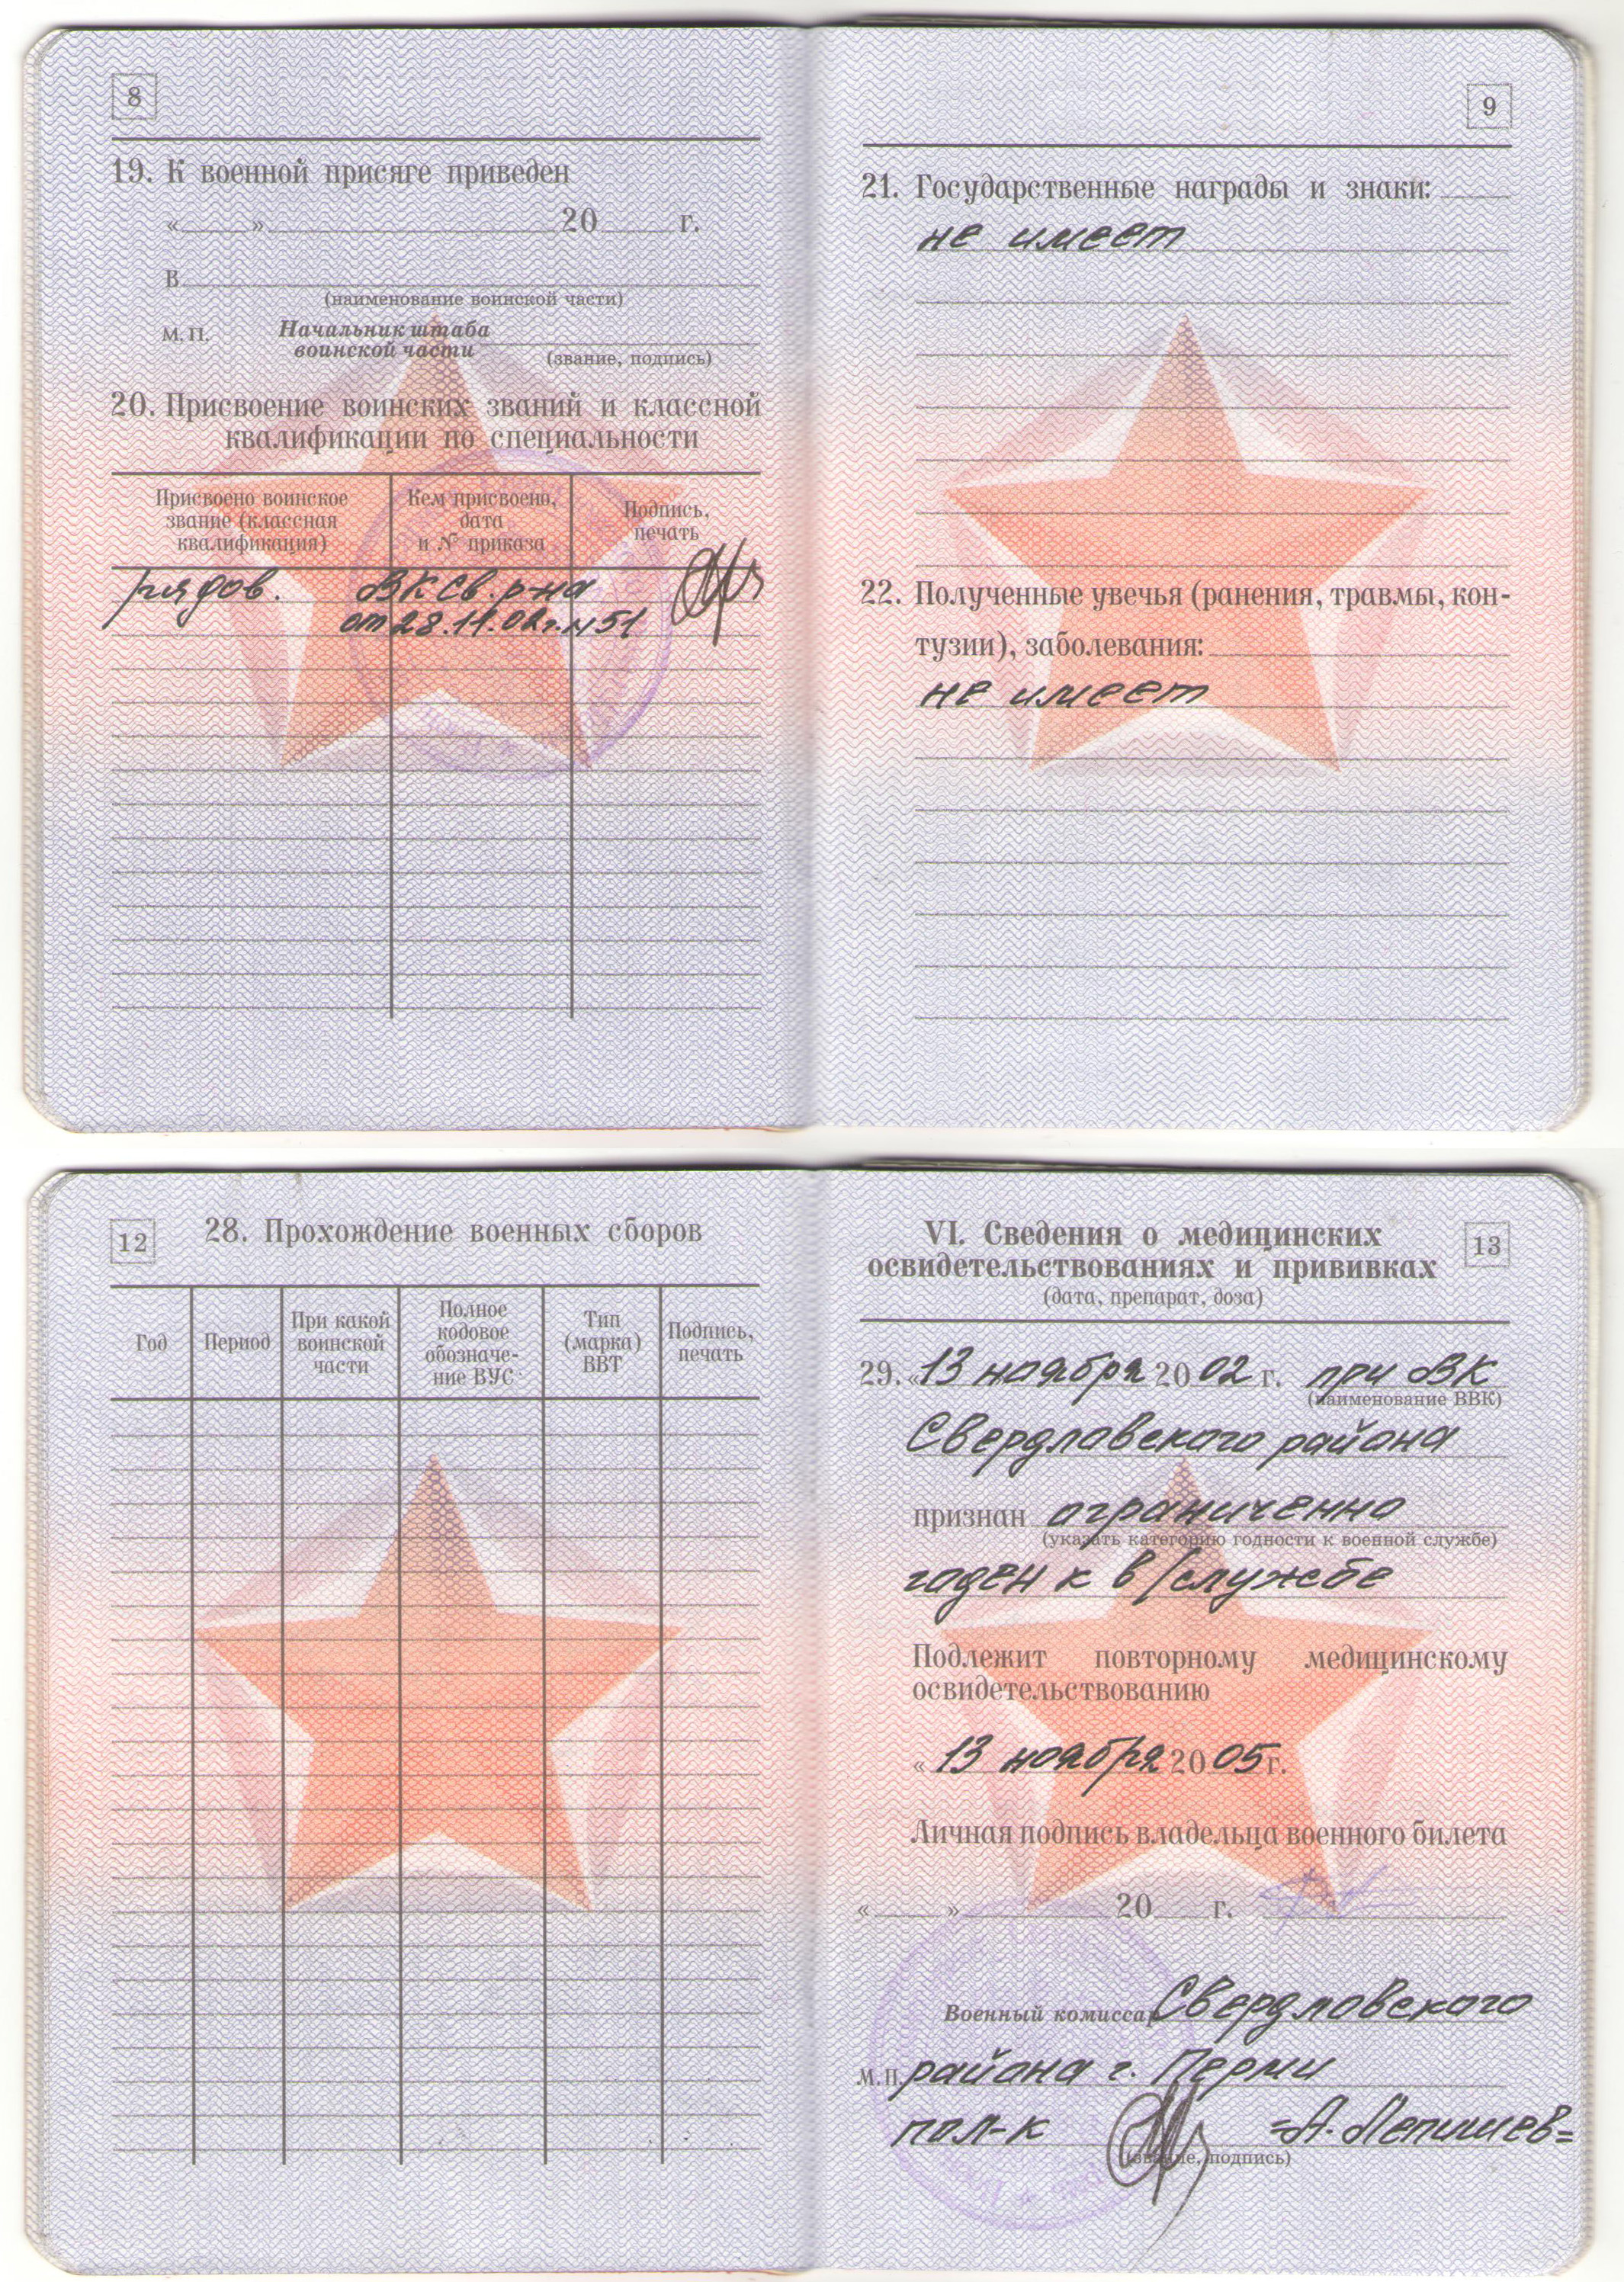 8
19. К военной присяге приведен
« » 20 г.
В
(наименование воинской части)
М.П. Начальник штаба
воинской части
(звание, подпись)
20. Присвоение воинских званий и классной
квалификации по специальности
Присвоено воинское звание (классная квалификация) Кем присвоено, дата и № приказа Подпись, печать
рядов. ВК Св. р-на
от 28.11.02г. н 51
9
21. Государственные награды и знаки:
не имеет
22. Полученные увечья (ранения, травмы, кон-
тузии), заболевания:
не имеет
12
28. Прохождение военных сборов
Год Период При какой воинской части Полное кодовое обозначе- ние ВУС Тип (марка) ВВТ Подпись, печать
VI. Сведения о медицинских
освидетельствованиях и прививках
13
(дата, препарат, доза)
29. « 13 ноября 20 02 г. при ВК
(наименование ВВК)
Свердловского района
признан ограниченно
(указать категорию годности к военной службе)
годен к в/службе
Подлежит повторному медицинскому
освидетельствованию
« 13 ноября 20 05 г.
Личная подпись владельца военного билета
« » 20 г.
Военный комиссар Свердловского
М.П. района г. Перми
пол-к =А. Лепишев=
(звание, подпись)